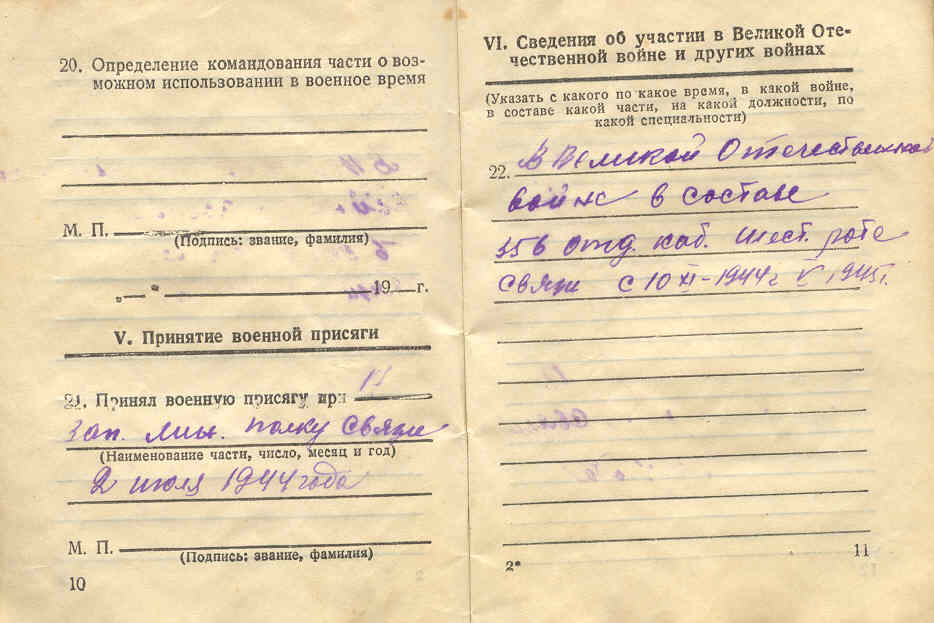 20. Определение командования части о воз-
можном использовании в военное время
М. П.
(Подпись: звание, фамилия)
„ — " — 19 — г.
V. Принятие военной присяги
21. Принял военную присягу при
Зап. лин. полку связи
(Наименование части, число, месяц и год)
2 июля 1944 года
М. П.
(Подпись: звание, фамилия)
10
VI. Сведения об участии в Великой Оте-
чественной войне и других войнах
(Указать с какого по какое время, в какой войне,
в составе какой части, на какой должности, по
какой специальности)
22. В Великой Отечественной
войне в составе
356 отд. каб. шест. роте
связи с 10 XI-1944 г V 1945г.
2*
11